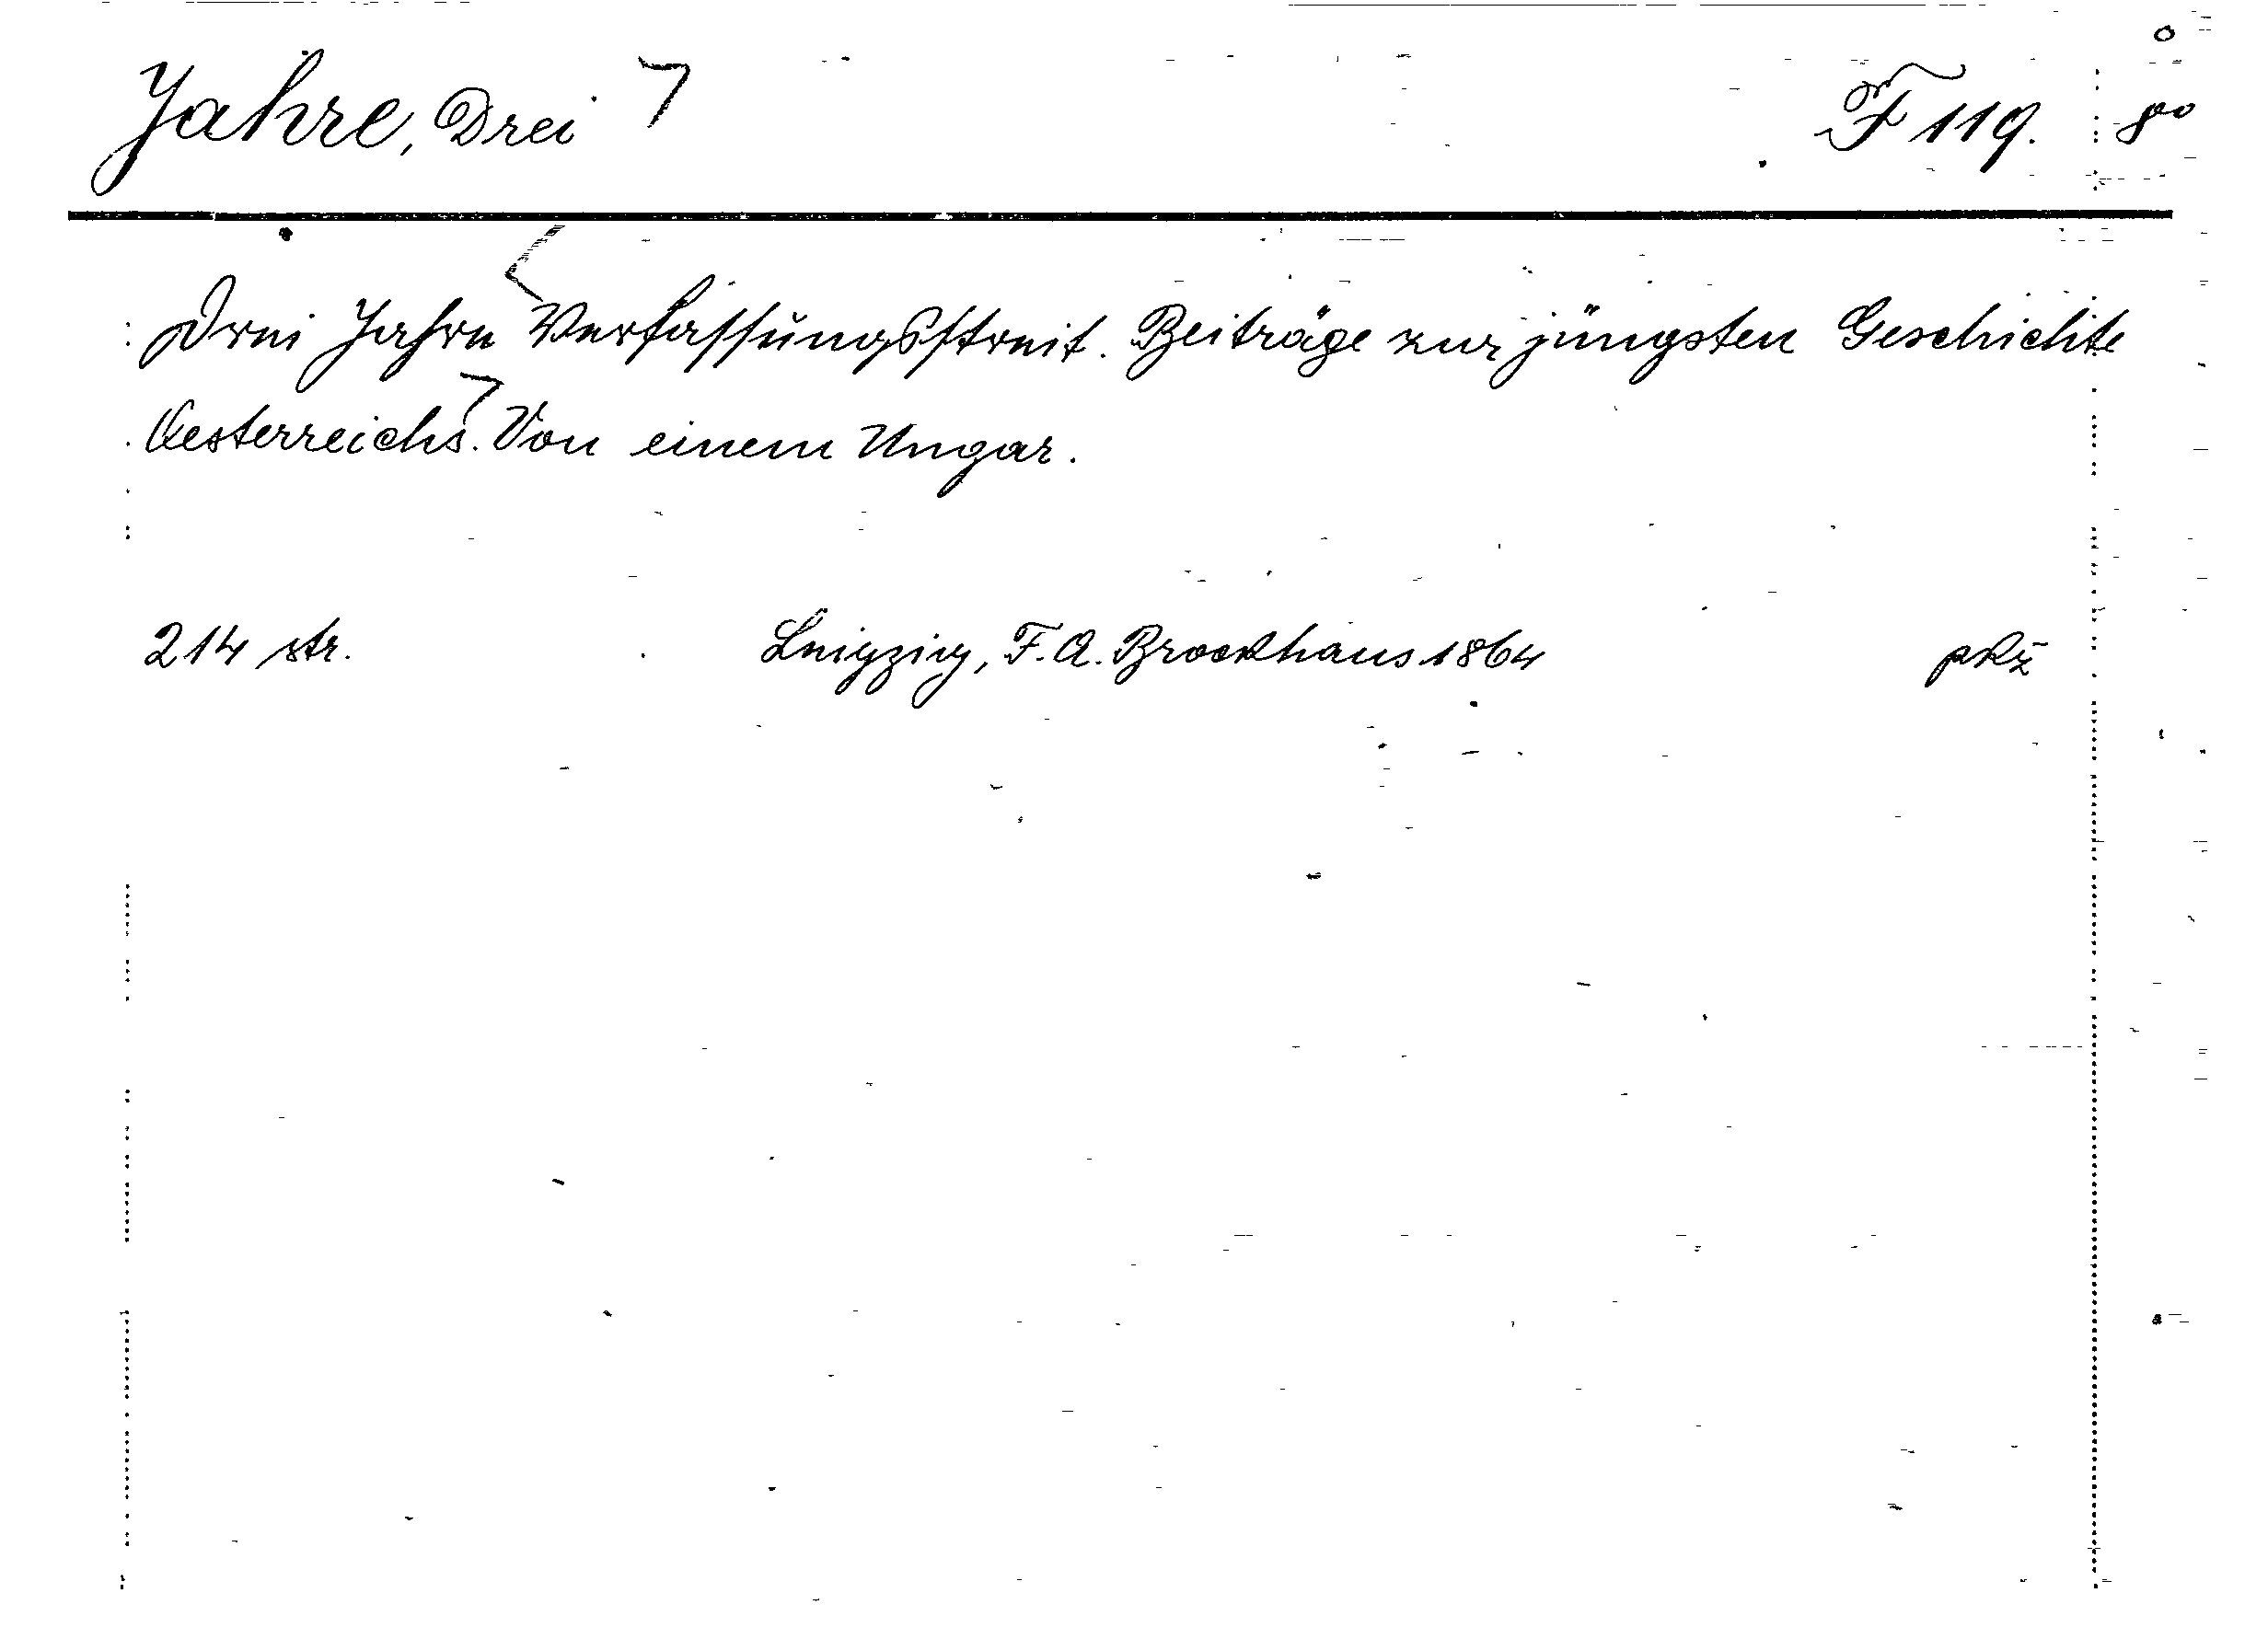 Jahre, Drei F 119. 8°
Drei Jahre Verfassungsstreit. Beiträge zur jüngsten Geschichte
Oesterreichs. Von einem Ungar.
214 str. Leipzig, F. A. Brockhaus 1864 pkž